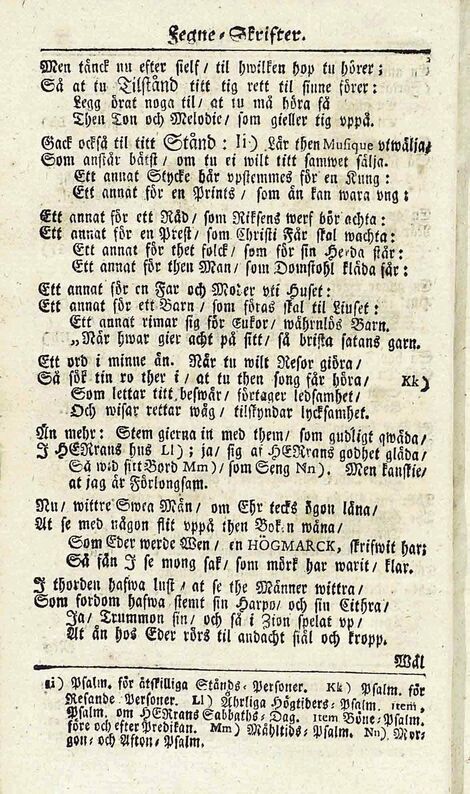 Fegne-Skrifter.
Men tänck nu efter sielf/ til hwilken hop tu hörer;
Så at tu Tilstånd titt tig rett til sinne förer:
Legg örat noga til/ at tu må höra få
Then Ton och Melodie/ som gieller tig uppå.
Gack också til titt Stånd: Ii) Lär then Musique utwälja/
Som anstår bätst/ om tu ei wilt titt samwet sälja.
Ett annat Stycke bär upstemmes för en Kung:
Ett annat för en Prints/ som än kan wara ung:
Ett annat för ett Råd/ som Riksens werf bör achta:
Ett annat för en Prest/ som Christi Får skal wachta:
Ett annat för thet folck/ som för sin Herda står:
Ett annat för then Man/ som Domstohl kläda får:
Ett annat för en Far och Moder uti Huset:
Ett annat för ett Barn/ som föras skal til Liuset:
Ett annat rimar sig för Enkor/ wähnlös Barn.
„När hwar gier acht på sitt/ så brista satans garn.
Ett ord i minne än. När tu wilt Resor giöra/
Så sök tin ro ther i/ at tu then song får höra/ Kk)
Som lettar titt beswär/ förtager ledsamhet/
Och wisar rettar wäg/ tilskyndar lycksamhet.
Än mehr: Stem gierna in med them/ som gudligt qwäda/
I HERrans hus Ll); ja/ sig af HERrans godhet gläda/
Så wid sitt Bord Mm)/ som Seng Nn). Men kanskie/
at jag är Förlongsam.
Nu/ wittre Swea Män/ om Ehr tecks ögon läna/
At se med någon flit uppå then Boken wäna/
Som Eder werde Wen/ en HÖGMARCK, skrifwit har;
Så fån I se mong sak/ som mörk har warit/ klar.
I thorden hafwa lust/ at se the Männer wittra/
Som fordom hafwa stemt sin Harpo/ och sin Cithra/
Ja/ Trummon sin/ och så i Zion spelat up/
At än hos Eder rörs til andacht siäl och kropp.
Wäl
Ii) Psalm. för åtskilliga Stånds-Personer. Kk) Psalm. för
Resande Personer. Ll) Åhrliga Högtiders-Psalm. item,
Psalm. om HERrans Sabbaths-Dag. item Böne-Psalm.
före och efter Predikan. Mm) Måhltids-Psalm. Nn) Mor-
gon- och Afton-Psalm.